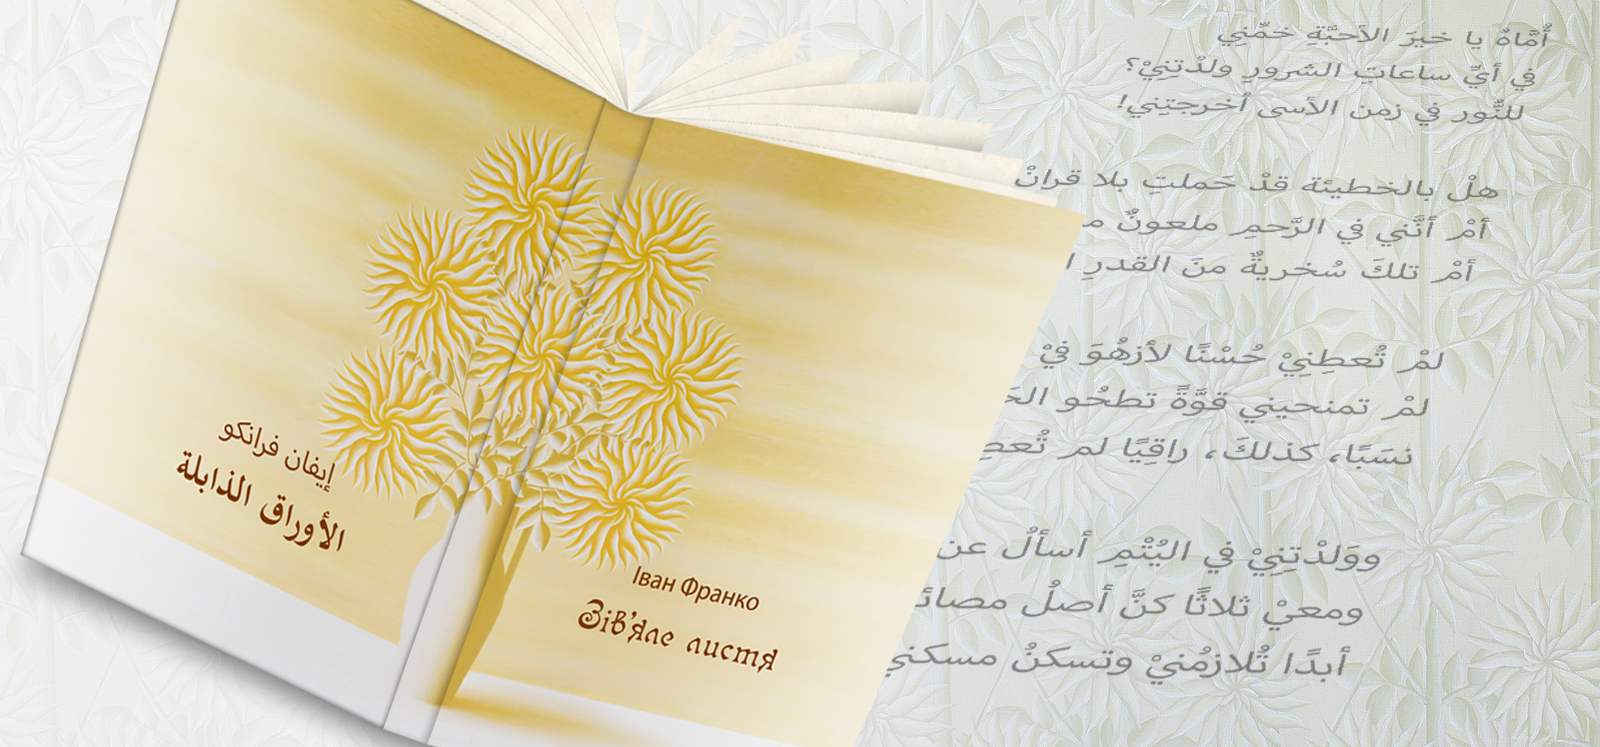 إيفان فرانكو
الأوراق الذابلة
Іван Франко
Зів'яле листя
أُمَّاهُ يا خيرَ الأحبَّةِ خمِّنِي
في أيِّ ساعاتِ الشرورِ ولدْتنِيْ؟
للنُّور في زمن الأسى أخرجتِني!
هلْ بالخطيئة قدْ حَملتِ بلا قرانْ
أمْ أنَّني في الرَّحمِ ملعونٌ
أمْ تلكَ سُخريةٌ منَ القدرِ
لمْ تُعطِنِيْ حُسْنًا لأزهُوَ فيْ
لمْ تمنحيني قوَّةً تطحُو
نسَبًا، كذلكَ، راقِيًا لم
ووَلدْتِنِيْ في اليُتْمِ أسألُ عن
ومعيْ ثلاثًا كنَّ أصلُ
أبدًا تُلازمُنيْ وتسكنُ مسكني